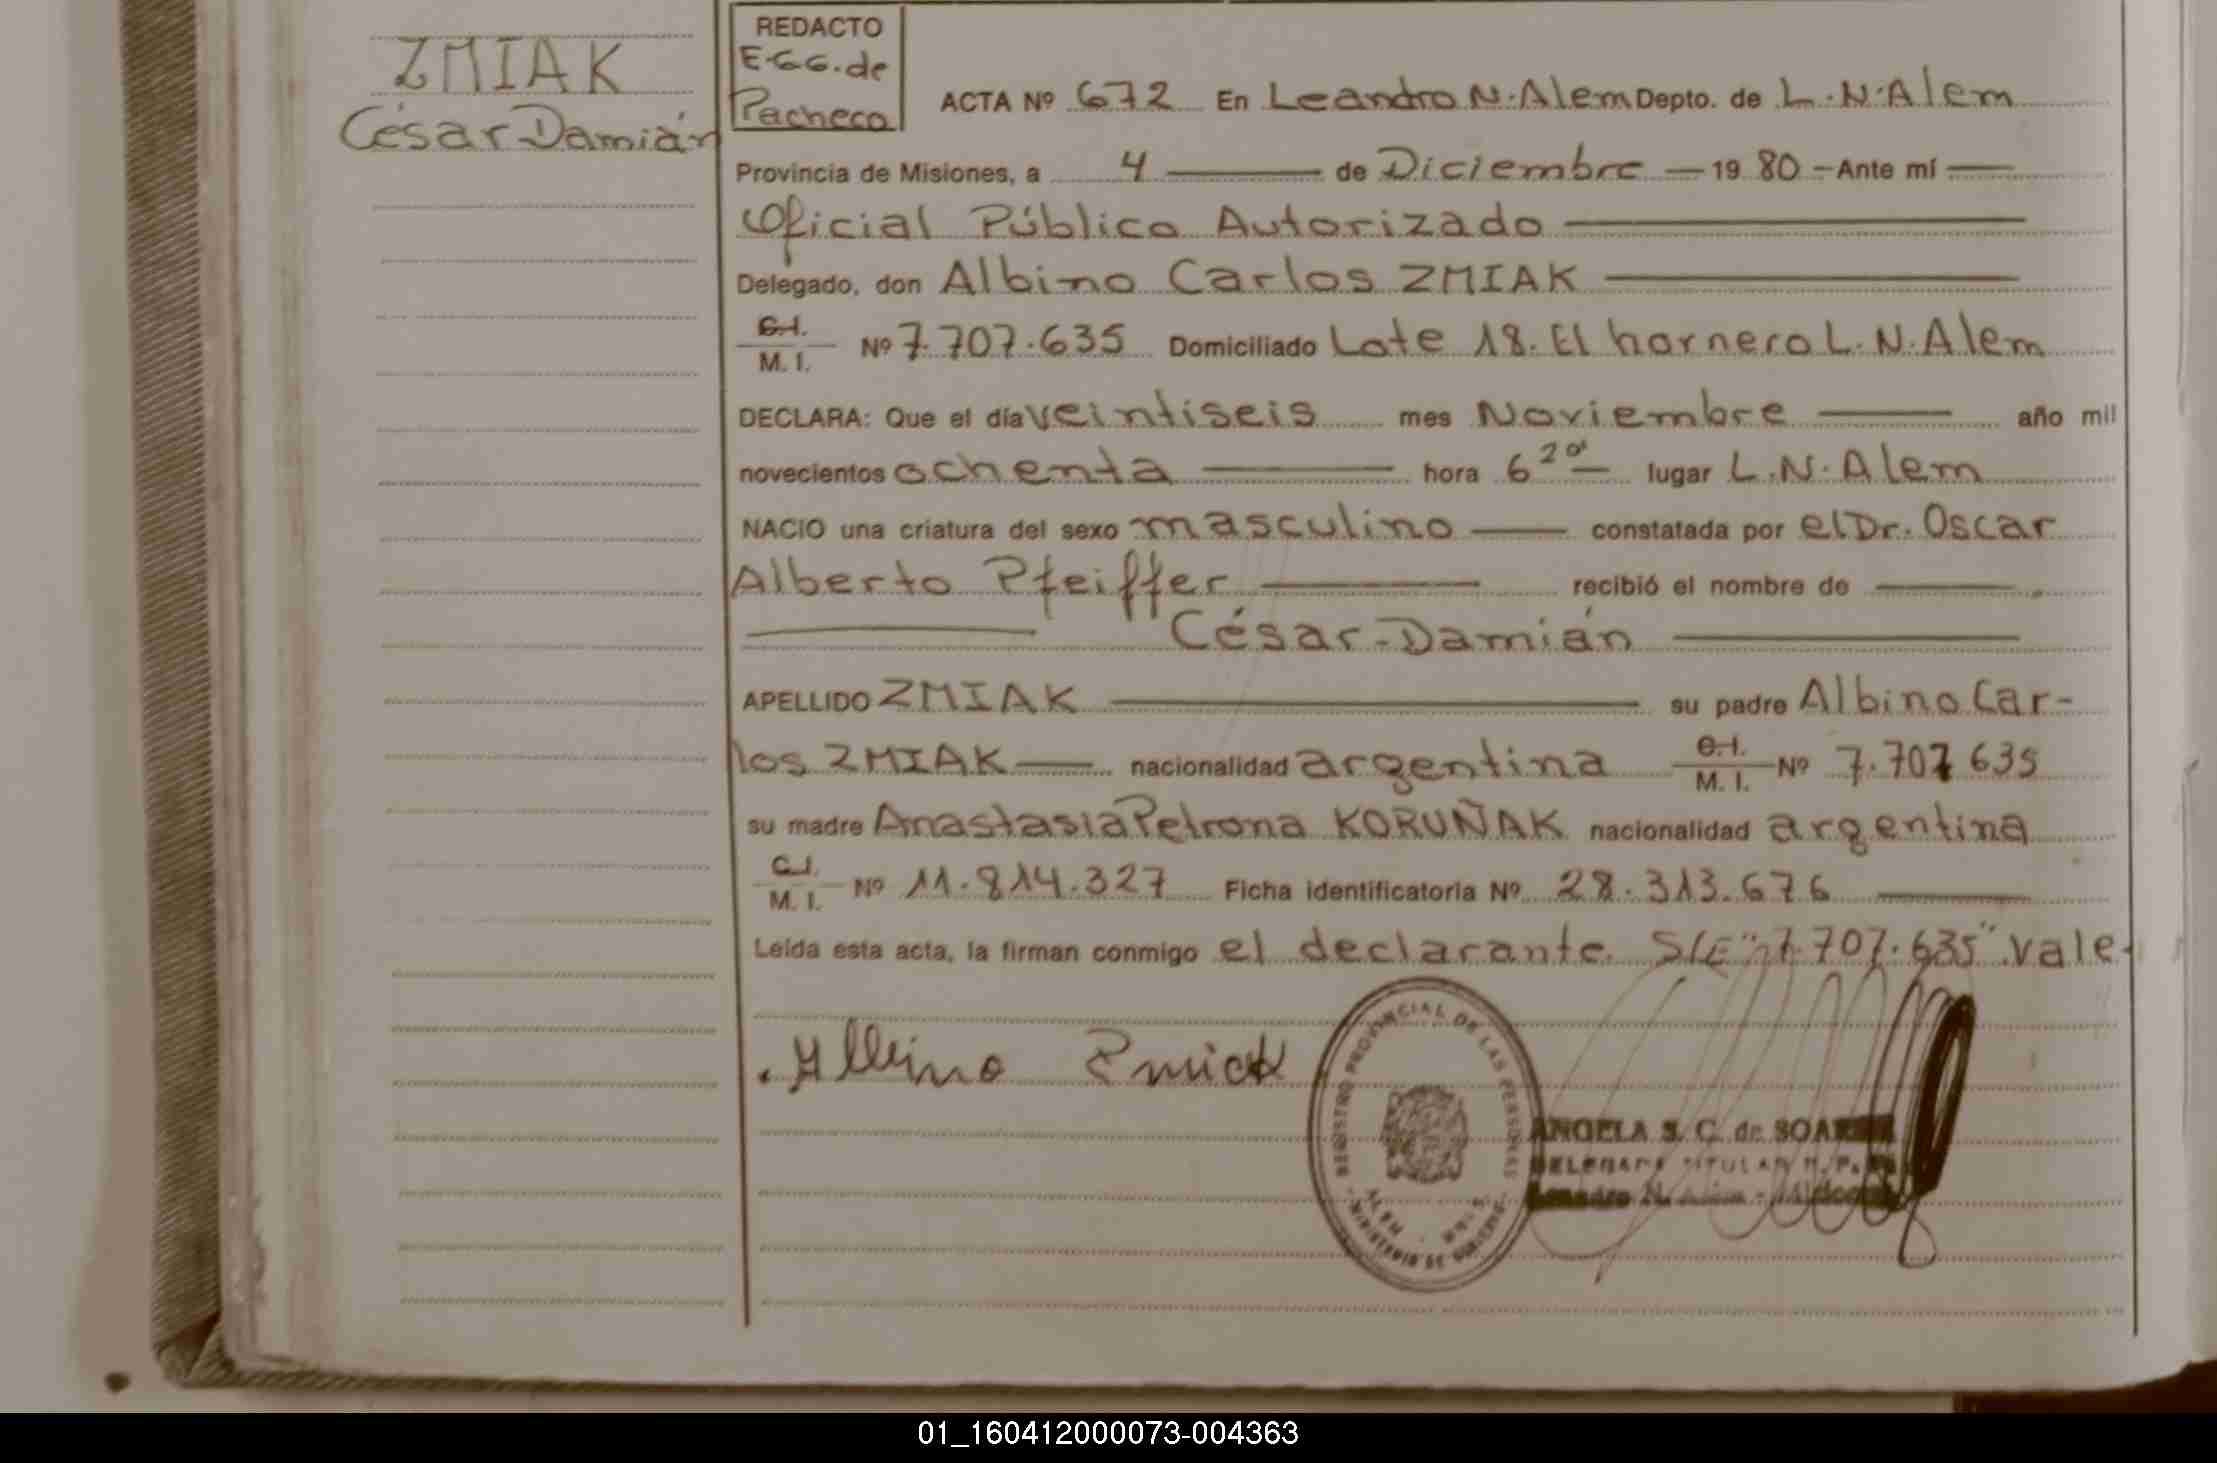 ZMIAK
César Damián
REDACTO
E.G.G. de
Pacheco
ACTA Nº 672 En Leandro N. Alem Depto. de L. N. Alem
Provincia de Misiones, a 4 de Diciembre 1980 Ante mí
Oficial Público Autorizado
Delegado, don Albino Carlos ZMIAK
C.I.
M. I. Nº 7.707.635 Domiciliado Lote 18. El hornero L. N. Alem
DECLARA: Que el día veintiseis mes Noviembre año mil
novecientos ochenta hora 6 20 lugar L. N. Alem
NACIO una criatura del sexo masculino constatada por el Dr. Oscar
Alberto Pfeiffer recibió el nombre de
César Damián
APELLIDO ZMIAK su padre Albino Car-
los ZMIAK nacionalidad argentina C.I.
M. I. Nº 7.707 635
su madre Anastasia Petrona KORUÑAK nacionalidad argentina
C.I.
M. I. Nº 11.814.327 Ficha identificatoria Nº 28.313.676
Leída esta acta, la firman conmigo el declarante. S/E "7.707.635" vale.
Albino Zmiak
REGISTRO PROVINCIAL DE LAS PERSONAS
ALEM
MINISTERIO DE GOBIERNO
ANGELA S. C. de SOAREZ
DELEGADA TITULAR R. P.
Leandro N. Alem - Misiones
01_160412000073-004363